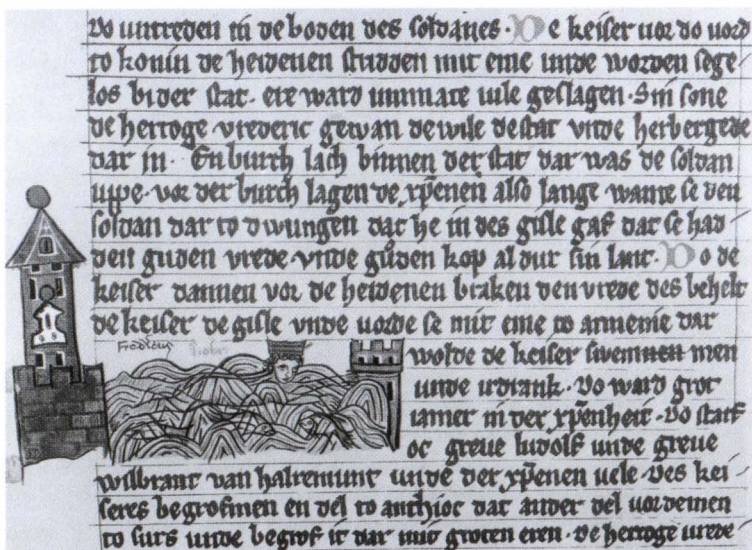 vo untreden in de boden des soldanes. Do e keiser vor do vord
to konin de heidenen stridden mit eme unde worden sege
los bi der stat. ere ward unmate vile geslagen. Sin sone
de hertoge vrederic gewan de wile de stat vnde herbergede
dar in. En burch lach binnen der stat dar was de soldan
uppe. vor der burch lagen de xp̄enen also lange wante se den
soldan dar to dwungen dat he in des gisle gaf dat se had
den guden vrede. vnde gůden kop al dur sin lant. Do de
keiser dannen vor de heidenen braken den vrede des behelt
de keiser de gisle vnde vorde se mit eme to armenie dar
Fredicus
wolde de keiser swemmen men
unde irdrank. Do ward grot
iamer in der xp̄enheit. Do starf
oc greve ludolf unde greve
wilbrant van halremunt unde der xp̄enen vele. Des kei
seres begrofmen en del to anthioc dat ander del vordemen
to surs unde begrof it dar mit groten eren. De hertoge vrede